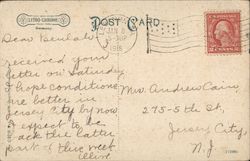 LITHO-CHROME
POST CARD
JAN 8
1915
Dear Beulah
received your
letter on Saturday
I hope conditions
are better in
Jersey City by now
I expect to be
back the latter
part of this week
Olive
Mrs. Andrew Cairns
275-5th St.
Jersey City,
N.J.
2 CENTS 2